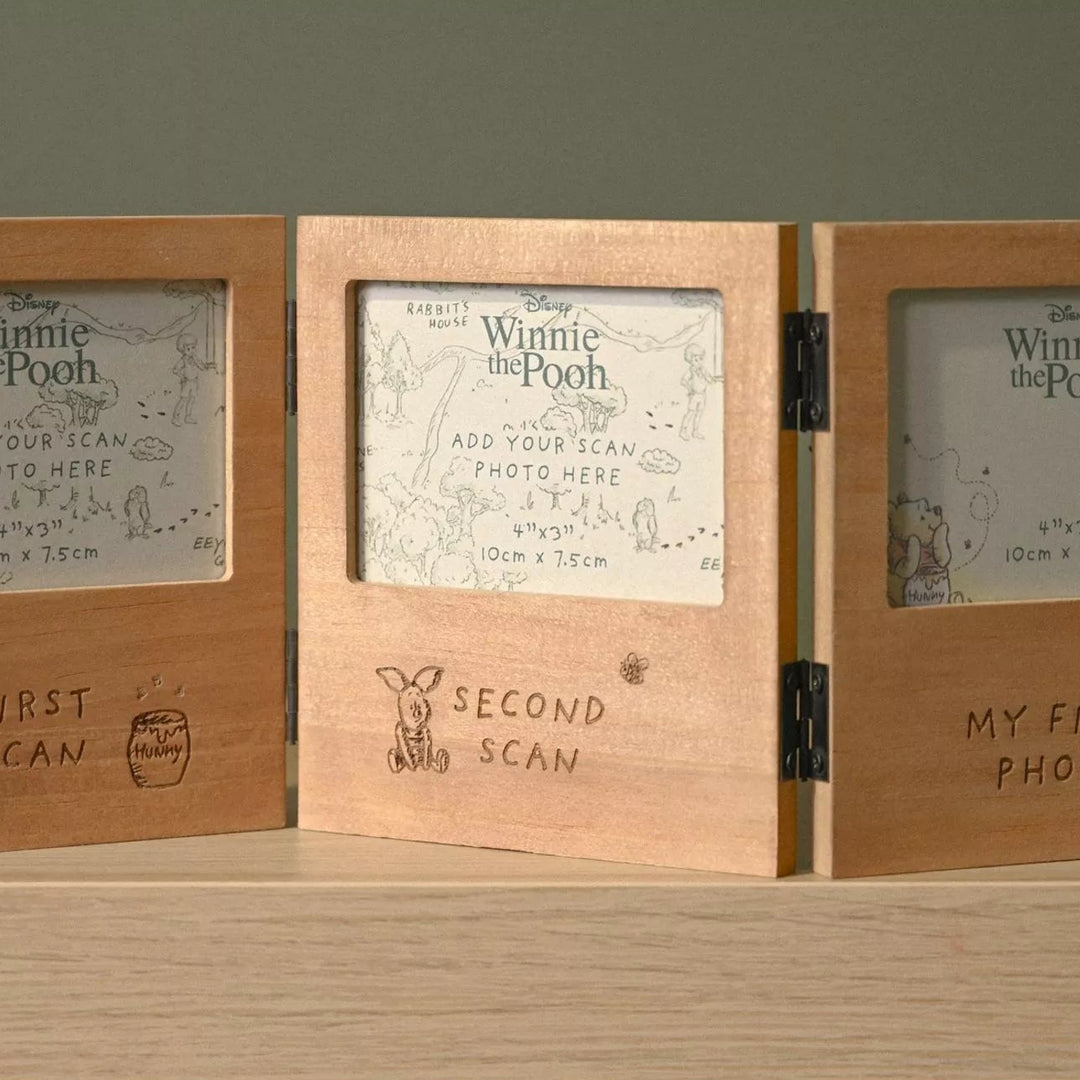 Disney
innie
the Pooh
YOUR SCAN
TO HERE
4"x3"
m x 7.5cm
EEY
IRST
CAN
HUNNY
RABBIT'S
HOUSE
Disney
Winnie
the Pooh
ADD YOUR SCAN
PHOTO HERE
4"x3"
10cm x 7.5cm
EE
SECOND
SCAN
Disn
Winn
the Po
4"x
10cm x
HUNNY
MY FI
PHO